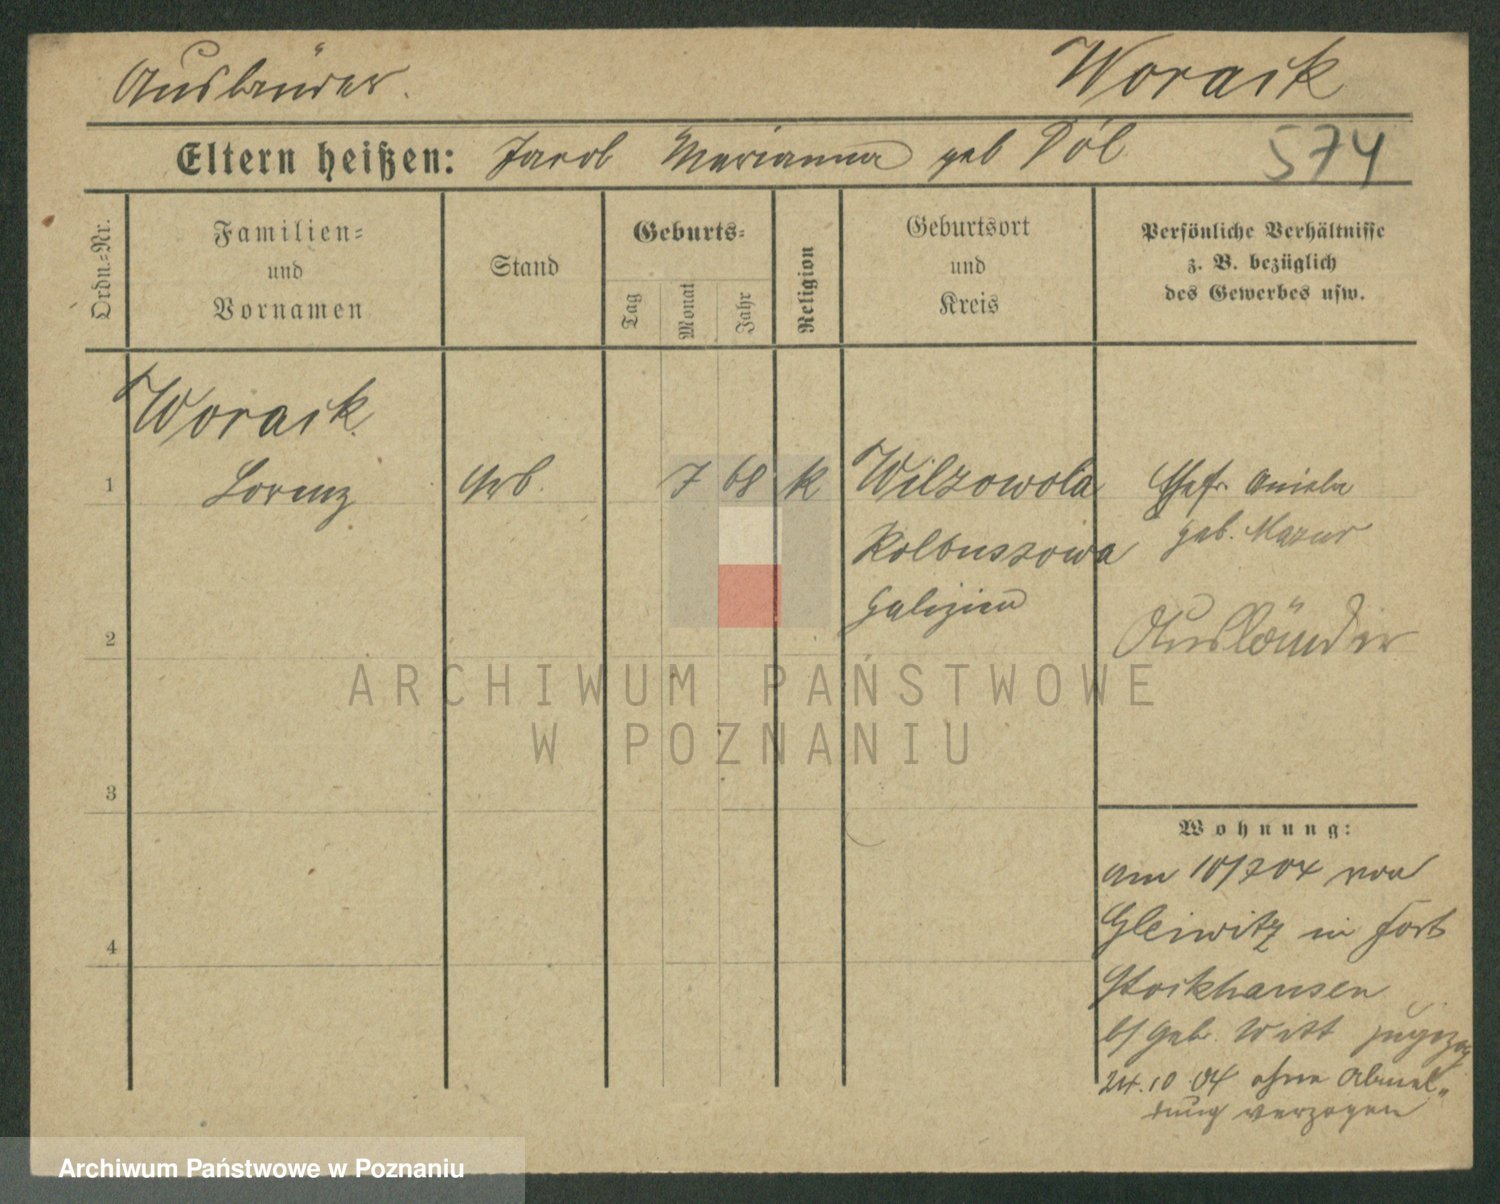 Ausländer.
Woracik
Eltern heißen: Jacob Marianna geb Dól
574
Ordn.-Nr.
Familien-
und
Vornamen
Stand
Geburts-
Tag
Monat
Jahr
Religion
Geburtsort
und
Kreis
Persönliche Verhältnisse
z. B. bezüglich
des Gewerbes usw.
Woracik
1 Lorenz Arb. 7 68 k Wilzowola Ehefr. Aniela
Kolbuszowa geb. Mazur
Galizien
Ausländer
2
3
4
Wohnung:
am 10/7 04 von
Gleiwitz in Fort
Stockhausen
b/ Geb. Witt zugezog
24.10 04 ohne Abmel-
dung verzogen
ARCHIWUM PAŃSTWOWE
W POZNANIU
Archiwum Państwowe w Poznaniu